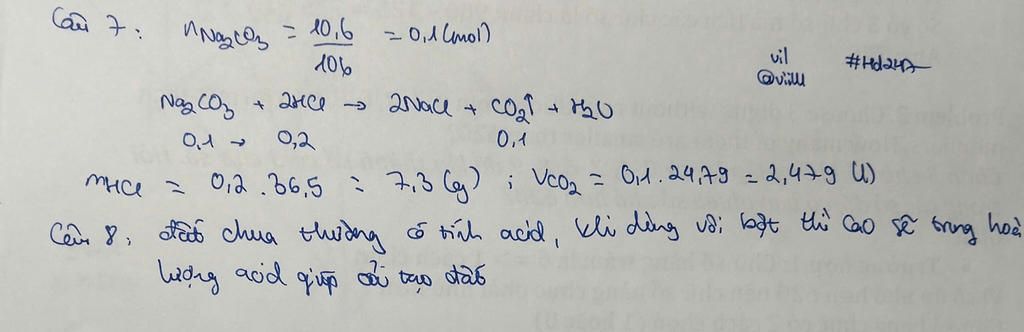 Câu 7: nNa₂CO₃ = 10,6/106 = 0,1 (mol)
vil #Hd247
@viill
Na₂CO₃ + 2HCl → 2NaCl + CO₂↑ + H₂O
0,1 → 0,2 0,1
mHCl = 0,2 . 36,5 = 7,3 (g) ; VCO₂ = 0,1 . 24,79 = 2,479 (l)
Câu 8: đất chua thường có tính acid, khi dùng vôi bột thì CaO sẽ trung hoà
lượng acid giúp cải tạo đất